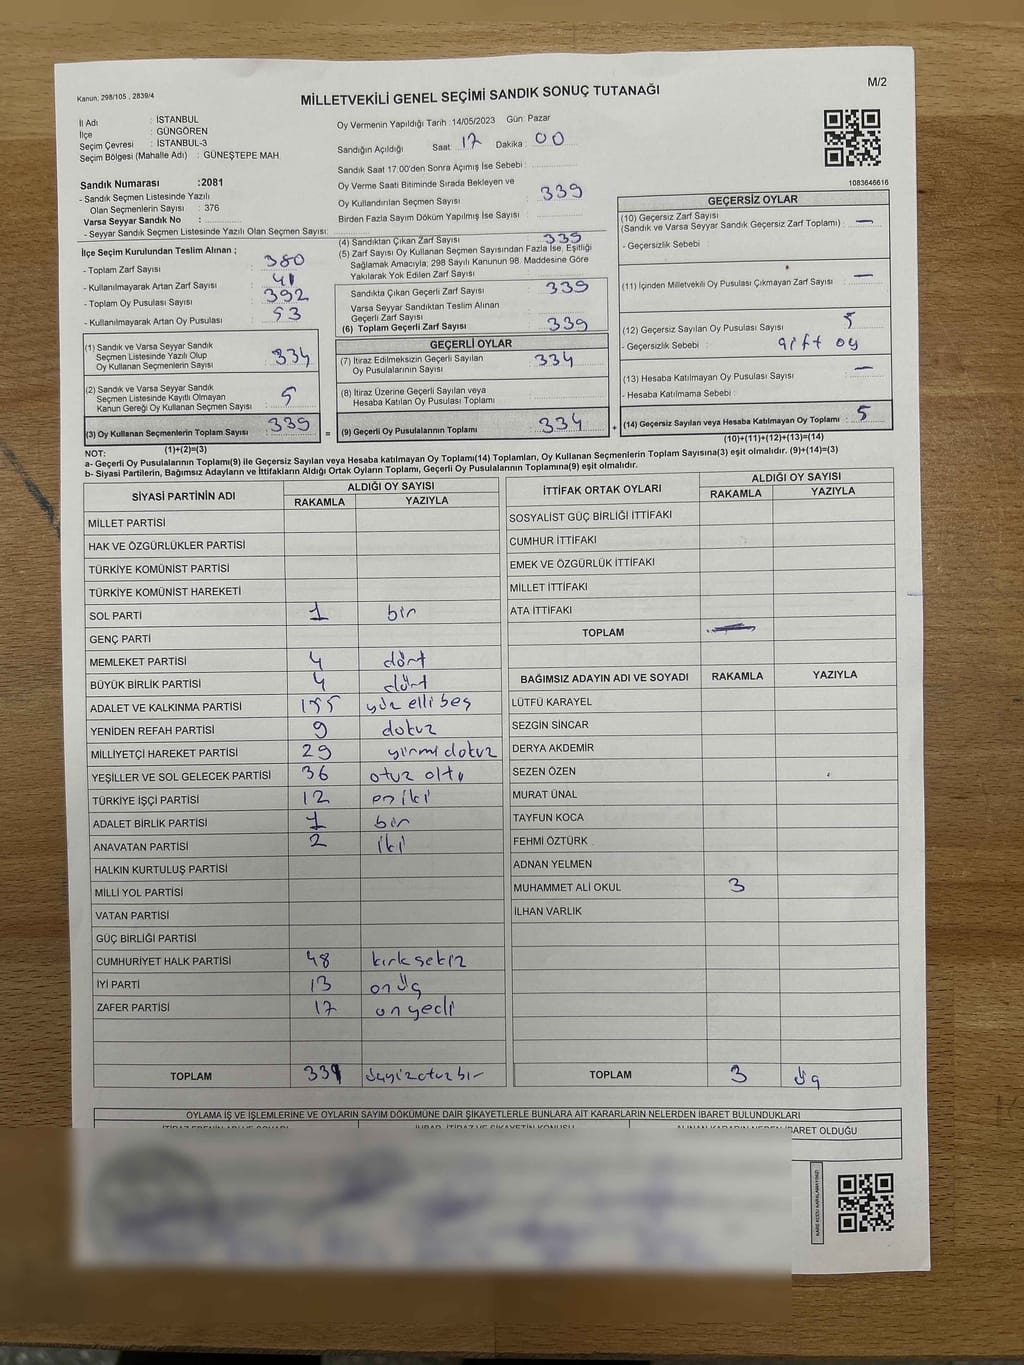 Kanun: 298/105 , 2839/4
M/2
MİLLETVEKİLİ GENEL SEÇİMİ SANDIK SONUÇ TUTANAĞI
İl Adı : İSTANBUL
İlçe : GÜNGÖREN
Seçim Çevresi : İSTANBUL-3
Seçim Bölgesi (Mahalle Adı) : GÜNEŞTEPE MAH.
Sandık Numarası :2081
- Sandık Seçmen Listesinde Yazılı
Olan Seçmenlerin Sayısı : 376
Varsa Seyyar Sandık No :
- Seyyar Sandık Seçmen Listesinde Yazılı Olan Seçmen Sayısı:
Oy Vermenin Yapıldığı Tarih :14/05/2023 Gün: Pazar
Sandığın Açıldığı Saat: 17 Dakika: 00
Sandık Saat 17.00'den Sonra Açımış İse Sebebi :
Oy Verme Saati Bitiminde Sırada Bekleyen ve
Oy Kullandırılan Seçmen Sayısı : 339
Birden Fazla Sayım Döküm Yapılmış İse Sayısı :
1083646616
İlçe Seçim Kurulundan Teslim Alınan ;
- Toplam Zarf Sayısı : 380
- Kullanılmayarak Artan Zarf Sayısı : 41
- Toplam Oy Pusulası Sayısı : 392
- Kullanılmayarak Artan Oy Pusulası : 53
(1) Sandık ve Varsa Seyyar Sandık
Seçmen Listesinde Yazılı Olup
Oy Kullanan Seçmenlerin Sayısı : 334
(2) Sandık ve Varsa Seyyar Sandık
Seçmen Listesinde Kayıtlı Olmayan
Kanun Gereği Oy Kullanan Seçmen Sayısı : 5
(3) Oy Kullanan Seçmenlerin Toplam Sayısı : 339
(1)+(2)=(3)
(4) Sandıktan Çıkan Zarf Sayısı : 339
(5) Zarf Sayısı Oy Kullanan Seçmen Sayısından Fazla İse, Eşitliği
Sağlamak Amacıyla; 298 Sayılı Kanunun 98. Maddesine Göre
Yakılarak Yok Edilen Zarf Sayısı :
Sandıkta Çıkan Geçerli Zarf Sayısı : 339
Varsa Seyyar Sandıktan Teslim Alınan
Geçerli Zarf Sayısı :
(6) Toplam Geçerli Zarf Sayısı : 339
GEÇERLİ OYLAR
(7) İtiraz Edilmeksizin Geçerli Sayılan
Oy Pusulalarının Sayısı : 334
(8) İtiraz Üzerine Geçerli Sayılan veya
Hesaba Katılan Oy Pusulası Toplamı :
= (9) Geçerli Oy Pusulalarının Toplamı : 334
GEÇERSİZ OYLAR
(10) Geçersiz Zarf Sayısı
(Sandık ve Varsa Seyyar Sandık Geçersiz Zarf Toplamı) : —
- Geçersizlik Sebebi :
(11) İçinden Milletvekili Oy Pusulası Çıkmayan Zarf Sayısı : —
(12) Geçersiz Sayılan Oy Pusulası Sayısı : 5
- Geçersizlik Sebebi : çift oy
(13) Hesaba Katılmayan Oy Pusulası Sayısı : —
- Hesaba Katılmama Sebebi :
+ (14) Geçersiz Sayılan veya Hesaba Katılmayan Oy Toplamı : 5
(10)+(11)+(12)+(13)=(14)
NOT:
a- Geçerli Oy Pusulalarının Toplamı(9) ile Geçersiz Sayılan veya Hesaba katılmayan Oy Toplamı(14) Toplamları, Oy Kullanan Seçmenlerin Toplam Sayısına(3) eşit olmalıdır. (9)+(14)=(3)
b- Siyasi Partilerin, Bağımsız Adayların ve İttifakların Aldığı Ortak Oyların Toplamı, Geçerli Oy Pusulalarının Toplamına(9) eşit olmalıdır.
SİYASİ PARTİNİN ADI ALDIĞI OY SAYISI
RAKAMLA YAZIYLA
MİLLET PARTİSİ
HAK VE ÖZGÜRLÜKLER PARTİSİ
TÜRKİYE KOMÜNİST PARTİSİ
TÜRKİYE KOMÜNİST HAREKETİ
SOL PARTİ 1 bir
GENÇ PARTİ
MEMLEKET PARTİSİ 4 dört
BÜYÜK BİRLİK PARTİSİ 4 dört
ADALET VE KALKINMA PARTİSİ 155 yüz elli beş
YENİDEN REFAH PARTİSİ 9 dokuz
MİLLİYETÇİ HAREKET PARTİSİ 29 yirmi dokuz
YEŞİLLER VE SOL GELECEK PARTİSİ 36 otuz altı
TÜRKİYE İŞÇİ PARTİSİ 12 on iki
ADALET BİRLİK PARTİSİ 1 bir
ANAVATAN PARTİSİ 2 iki
HALKIN KURTULUŞ PARTİSİ
MİLLİ YOL PARTİSİ
VATAN PARTİSİ
GÜÇ BİRLİĞİ PARTİSİ
CUMHURİYET HALK PARTİSİ 48 kırk sekiz
İYİ PARTİ 13 on üç
ZAFER PARTİSİ 17 on yedi
TOPLAM 331 üçyüzotuzbir
İTTİFAK ORTAK OYLARI ALDIĞI OY SAYISI
RAKAMLA YAZIYLA
SOSYALİST GÜÇ BİRLİĞİ İTTİFAKI
CUMHUR İTTİFAKI
EMEK VE ÖZGÜRLÜK İTTİFAKI
MİLLET İTTİFAKI
ATA İTTİFAKI
TOPLAM
BAĞIMSIZ ADAYIN ADI VE SOYADI RAKAMLA YAZIYLA
LÜTFÜ KARAYEL
SEZGİN SİNCAR
DERYA AKDEMİR
SEZEN ÖZEN
MURAT ÜNAL
TAYFUN KOCA
FEHMİ ÖZTÜRK
ADNAN YELMEN
MUHAMMET ALİ OKUL 3
İLHAN VARLIK
TOPLAM 3 üç
OYLAMA İŞ VE İŞLEMLERİNE VE OYLARIN SAYIM DÖKÜMÜNE DAİR ŞİKAYETLERLE BUNLARA AİT KARARLARIN NELERDEN İBARET BULUNDUKLARI
İBARET OLDUĞU